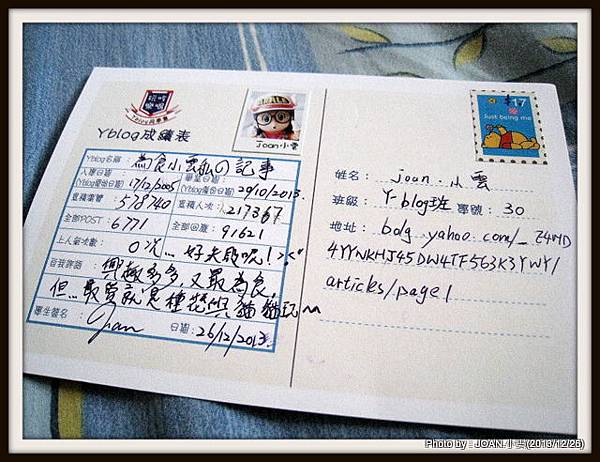 Yblog成績表
Joan小雲
Yblog名稱： 為食小雲私の記事
入學日期 (Yblog開始日期) 17/12/2005
畢業日期 (Yblog告白日期) 29/10/2013
累積瀏覽 578740
累積人次： 217367
全部POST： 6771
全部回應： 91621
上人氣次數： 0次... 好失敗呢！>"<
自我評語： 興趣多多，又最為食，
但...最愛就是種花與貓貓玩~
畢生簽名： Joan
日期： 26/12/2013
$17
Just being me
姓名： joan.小雲
班級： Y-blog班 學號： 30
地址： bolg.yahoo.com/_Z4YD
4YYNKHJ45DW4TF563K3YWY/
articles/page1
Photo by : JOAN.小雲(2013/12/26)